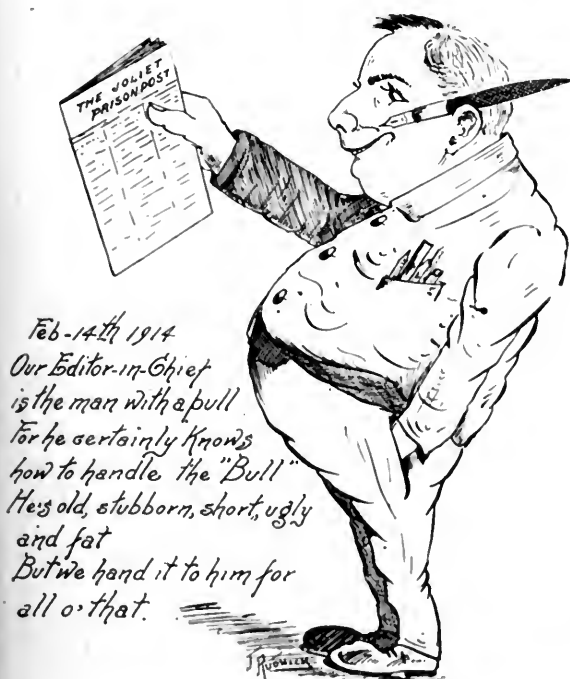 THE JOLIET
PRISON POST
Feb-14th 1914
Our Editor-in-Chief
is the man with a pull
For he certainly Knows
how to handle the "Bull"
He's old, stubborn, short, ugly
and fat
But we hand it to him for
all o' that.
J RUDNICK